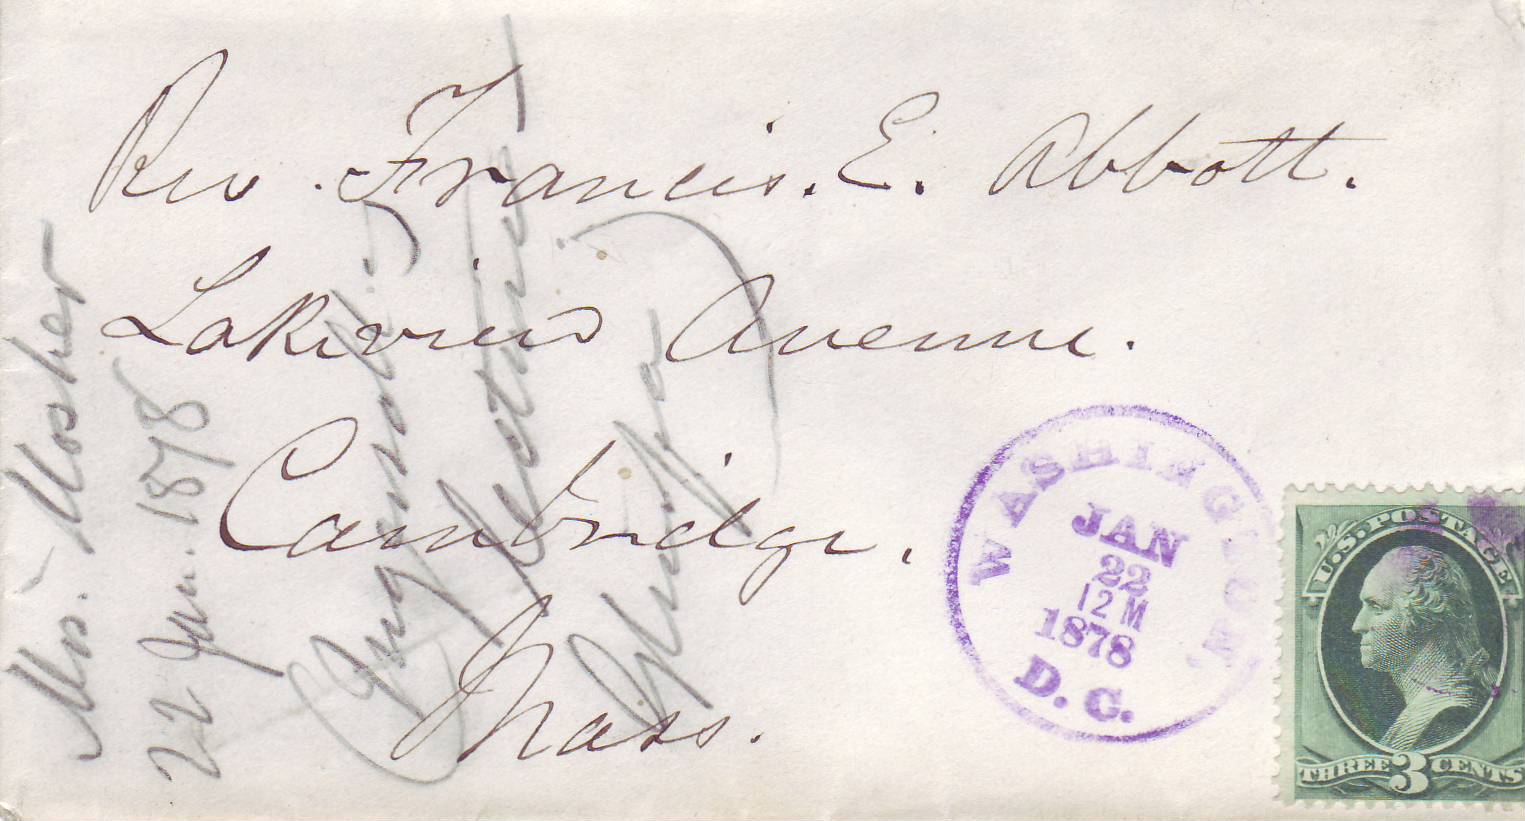 Rev. Francis. E. Abbott.
Lakeview Avenue.
Cambridge,
Mass.
WASHINGTON,
JAN
22
12 M
1878
D. C.
U.S. POSTAGE
THREE 3 CENTS
Mrs. Mosher
22 Jan. 1878